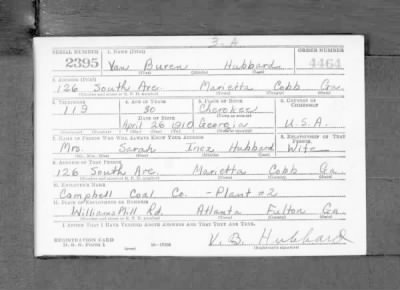 3-A
SERIAL NUMBER 1. NAME (Print) ORDER NUMBER
2395 Van Buren Hubbard 4464
(First) (Middle) (Last)
2. ADDRESS (Print)
126 South Ave. Marietta Cobb Ga.
(Number and street or R. F. D. number) (Town) (County) (State)
3. TELEPHONE 4. AGE IN YEARS 5. PLACE OF BIRTH 6. COUNTRY OF CITIZENSHIP
113 30 Cherokee
DATE OF BIRTH
April 26 1910 Georgia U.S.A.
7. NAME OF PERSON WHO WILL ALWAYS KNOW YOUR ADDRESS 8. RELATIONSHIP OF THAT PERSON
Mrs. Sarah Inez Hubbard Wife
(Mr., Mrs., Miss) (First) (Middle) (Last)
9. ADDRESS OF THAT PERSON
126 South Ave. Marietta Cobb Ga
(Number and street or R. F. D. number) (Town) (County) (State)
10. EMPLOYER'S NAME
Campbell Coal Co. - Plant #2
11. PLACE OF EMPLOYMENT OR BUSINESS
Williams Mill Rd. Atlanta Fulton Ga
(Number and street or R. F. D. number) (Town) (County) (State)
I AFFIRM THAT I HAVE VERIFIED ABOVE ANSWERS AND THAT THEY ARE TRUE.
REGISTRATION CARD V. B. Hubbard
D. S. S. Form 1 (Registrant's signature)